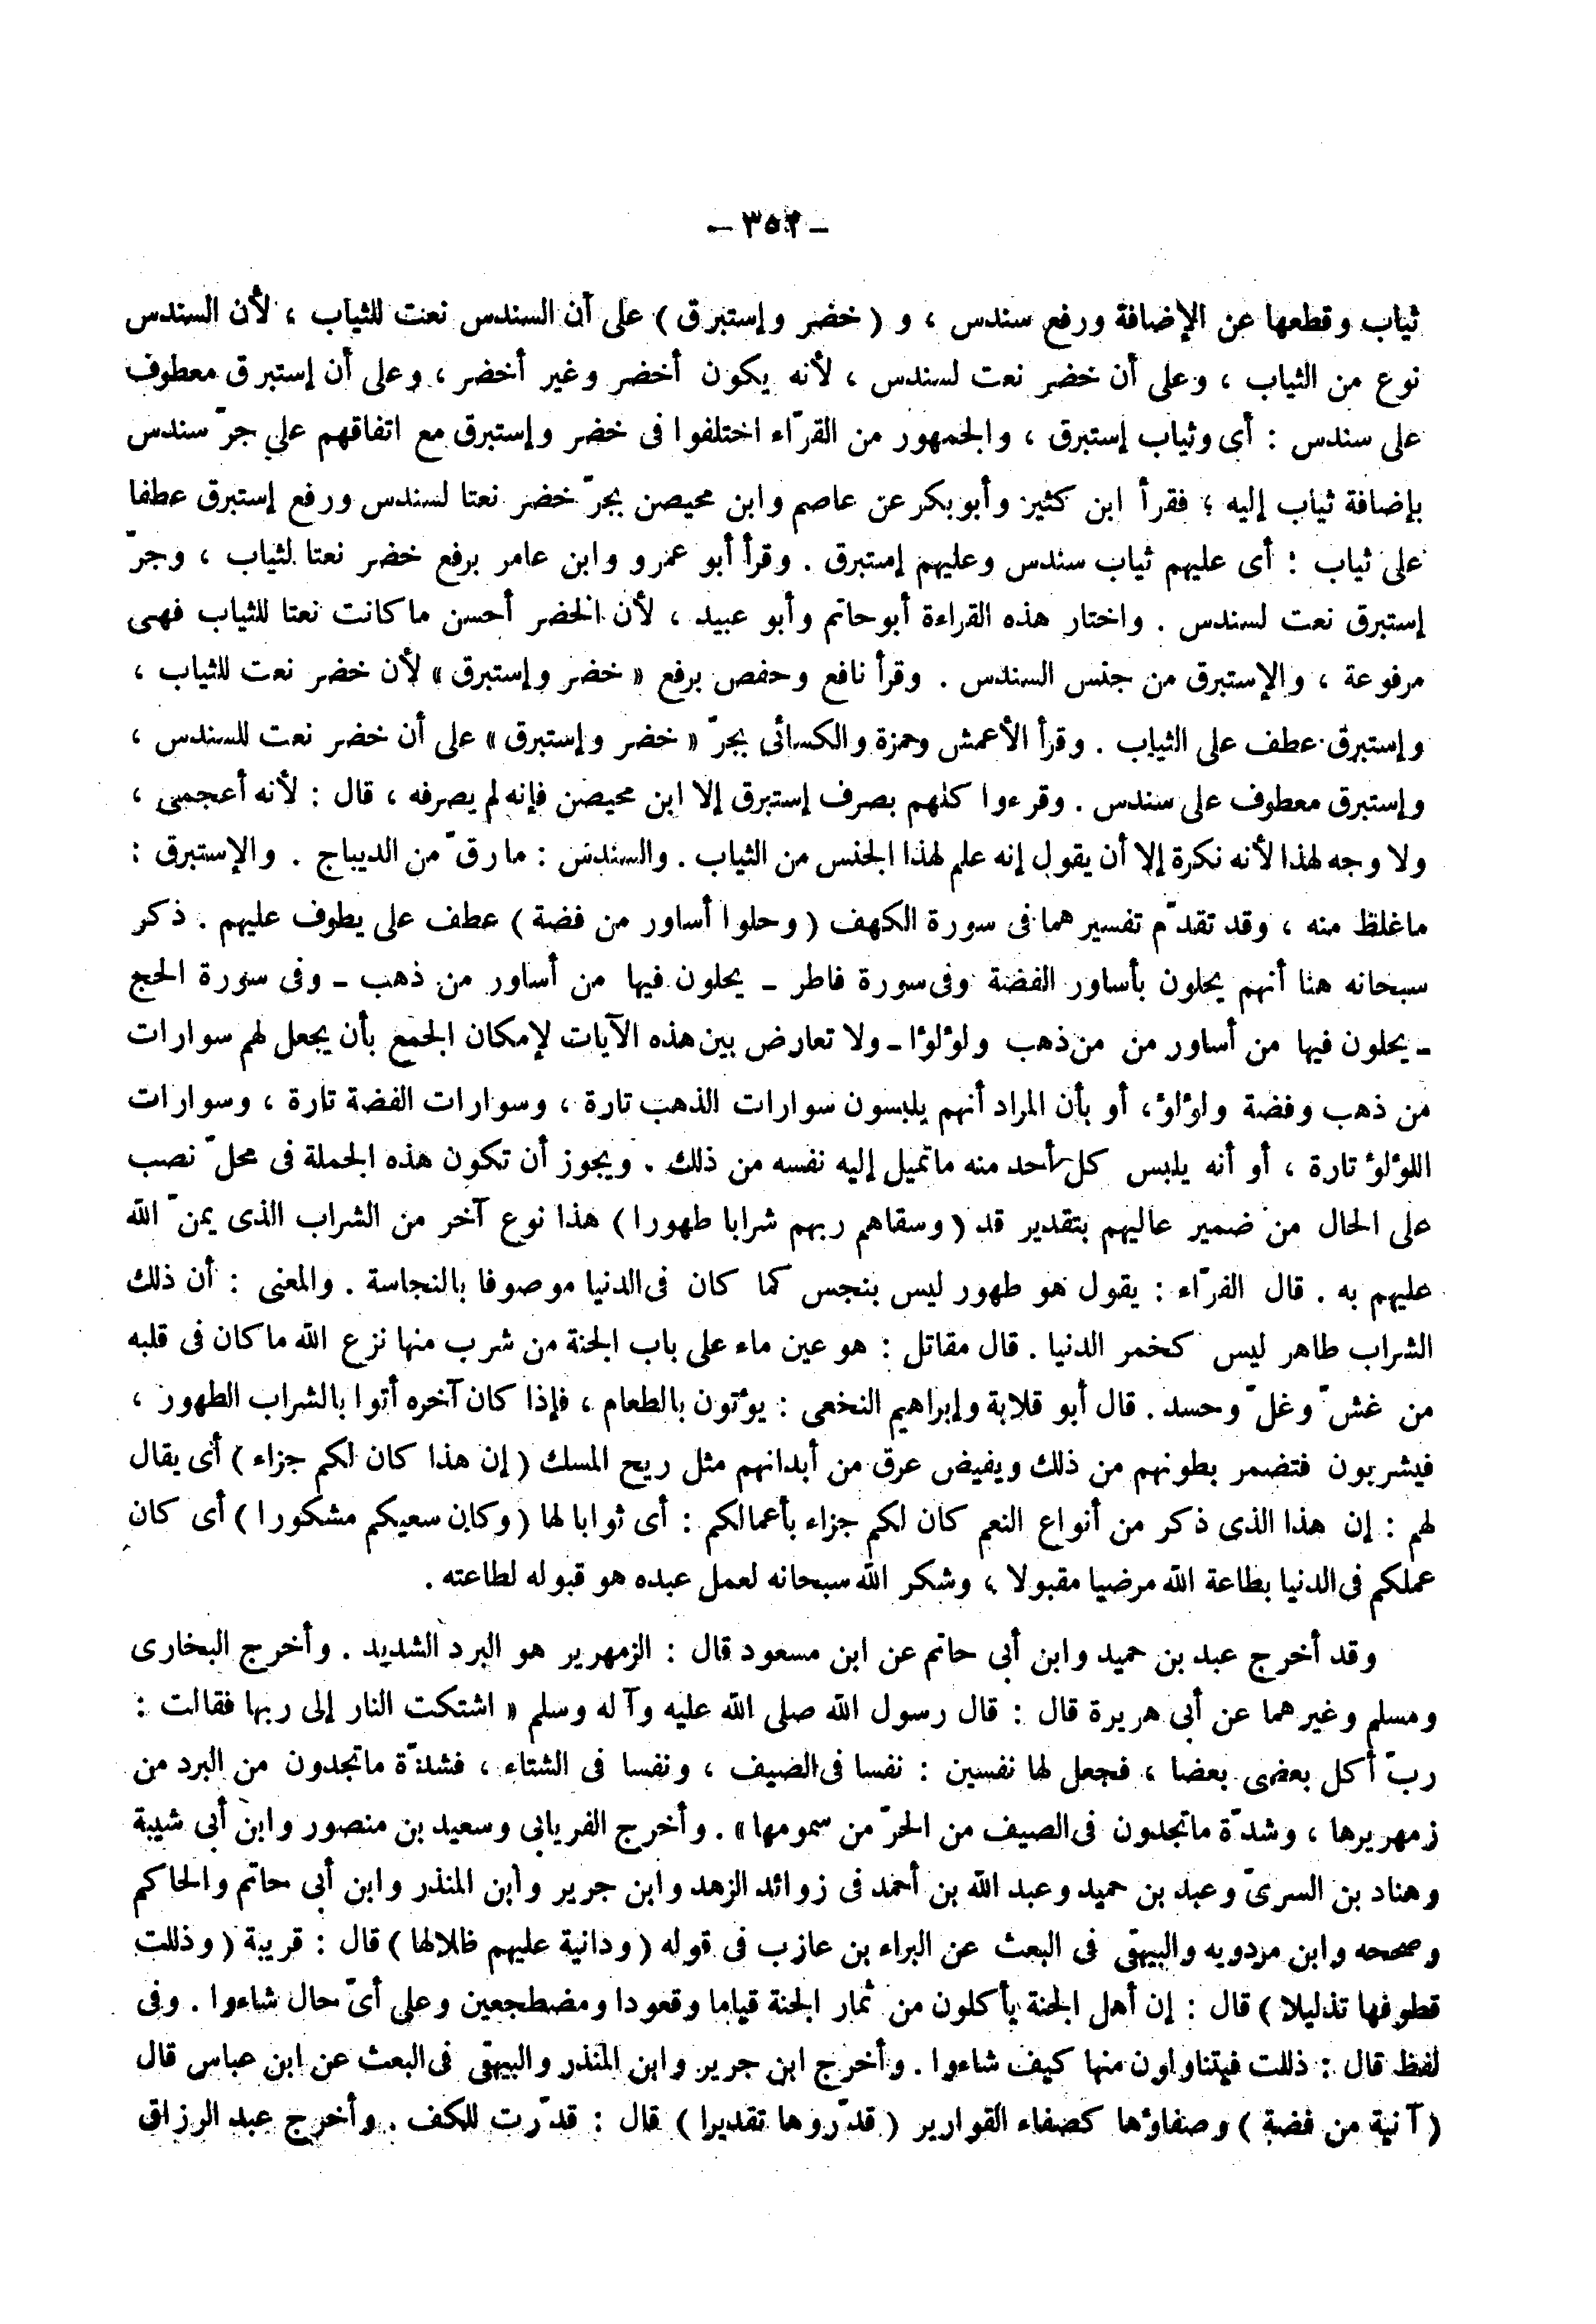 - ٣٥٢ -
ثياب وقطعها عن الإضافة ورفع سندس ، و ( خضر وإستبرق ) على أن السندس نعت للثياب ، لأن السندس
نوع من الثياب ، وعلى أن خضر نعت لسندس ، لأنه يكون أخضر وغير أخضر ، وعلى أن إستبرق معطوف
على سندس : أى وثياب إستبرق ، والجمهور من القرّاء اختلفوا فى خضر وإستبرق مع اتفاقهم على جرّ سندس
بإضافة ثياب إليه ؛ فقرأ ابن كثير وأبو بكر عن عاصم وابن محيصن بجرّ خضر نعتا لسندس ورفع إستبرق عطفا
على ثياب : أى عليهم ثياب سندس وعليهم إستبرق . وقرأ أبو عمرو وابن عامر برفع خضر نعتا لثياب ، وجرّ
إستبرق نعت لسندس . واختار هذه القراءة أبو حاتم وأبو عبيد ، لأن الخضر أحسن ما كانت نعتا للثياب فهى
مرفوعة ، والإستبرق من جنس السندس . وقرأ نافع وحفص برفع « خضر وإستبرق » لأن خضر نعت للثياب ،
وإستبرق عطف على الثياب . وقرأ الأعمش وحمزة والكسائى بجرّ « خضر وإستبرق » على أن خضر نعت للسندس ،
وإستبرق معطوف على سندس . وقرءوا كلهم بصرف إستبرق إلا ابن محيصن فإنه لم يصرفه ، قال : لأنه أعجمى ،
ولا وجه لهذا لأنه نكرة إلا أن يقول إنه علم لهذا الجنس من الثياب . والسندس : ما رقّ من الديباج . والإستبرق :
ما غلظ منه ، وقد تقدّم تفسيرهما فى سورة الكهف ( وحلوا أساور من فضة ) عطف على يطوف عليهم . ذكر
سبحانه هنا أنهم يحلون بأساور الفضة وفى سورة فاطر - يحلون فيها من أساور من ذهب - وفى سورة الحج
- يحلون فيها من أساور من من ذهب ولؤلؤا - ولا تعارض بين هذه الآيات لإمكان الجمع بأن يجعل لهم سوارات
من ذهب وفضة ولؤلؤ ، أو بأن المراد أنهم يلبسون سوارات الذهب تارة ، وسوارات الفضة تارة ، وسوارات
اللؤلؤ تارة ، أو أنه يلبس كل أحد منه ما تميل إليه نفسه من ذلك . ويجوز أن تكون هذه الجملة فى محلّ نصب
على الحال من ضمير عاليهم بتقدير قد ( وسقاهم ربهم شرابا طهورا ) هذا نوع آخر من الشراب الذى يمنّ الله
عليهم به . قال الفرّاء : يقول هو طهور ليس بنجس كما كان فى الدنيا موصوفا بالنجاسة . والمعنى : أن ذلك
الشراب طاهر ليس كخمر الدنيا . قال مقاتل : هو عين ماء على باب الجنة من شرب منها نزع الله ما كان فى قلبه
من غشّ وغلّ وحسد . قال أبو قلابة وإبراهيم النخعى : يؤتون بالطعام ، فإذا كان آخره أتوا بالشراب الطهور ،
فيشربون فتضمر بطونهم من ذلك ويفيض عرق من أبدانهم مثل ريح المسك ( إن هذا كان لكم جزاء ) أى يقال
لهم : إن هذا الذى ذكر من أنواع النعم كان لكم جزاء بأعمالكم : أى ثوابا لها ( وكان سعيكم مشكورا ) أى كان
عملكم فى الدنيا بطاعة الله مرضيا مقبولا ، وشكر الله سبحانه لعمل عبده هو قبوله لطاعته .
وقد أخرج عبد بن حميد وابن أبى حاتم عن ابن مسعود قال : الزمهرير هو البرد الشديد . وأخرج البخارى
ومسلم وغيرهما عن أبى هريرة قال : قال رسول الله صلى الله عليه وآله وسلم « اشتكت النار إلى ربها فقالت :
ربّ أكل بعضى بعضا ، فجعل لها نفسين : نفسا فى الصيف ، ونفسا فى الشتاء ، فشدّة ما تجدون من البرد من
زمهريرها ، وشدّة ما تجدون فى الصيف من الحرّ من سمومها » . وأخرج الفريابى وسعيد بن منصور وابن أبى شيبة
وهناد بن السرىّ وعبد بن حميد وعبد الله بن أحمد فى زوائد الزهد وابن جرير وابن المنذر وابن أبى حاتم والحاكم
وصححه وابن مردويه والبيهقى فى البعث عن البراء بن عازب فى قوله ( ودانية عليهم ظلالها ) قال : قريبة ( وذللت
قطوفها تذليلا ) قال : إن أهل الجنة يأكلون من ثمار الجنة قياما وقعودا ومضطجعين وعلى أىّ حال شاءوا . وفى
لفظ قال : ذللت فيتناولون منها كيف شاءوا . وأخرج ابن جرير وابن المنذر والبيهقى فى البعث عن ابن عباس قال
( آنية من فضة ) وصفاؤها كصفاء القوارير ( قدّروها تقديرا ) قال : قدّرت للكف . وأخرج عبد الرزاق